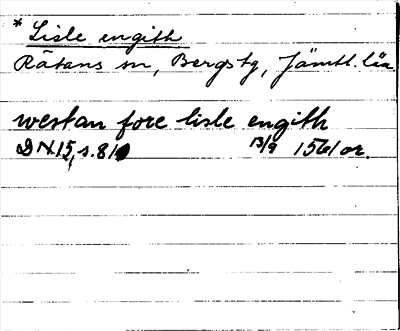 * Lisle engith
Rätans sn, Bergs tg, Jämtl. län
westan fore lisle engith
DN 15, s. 81 13/9 1561 or.